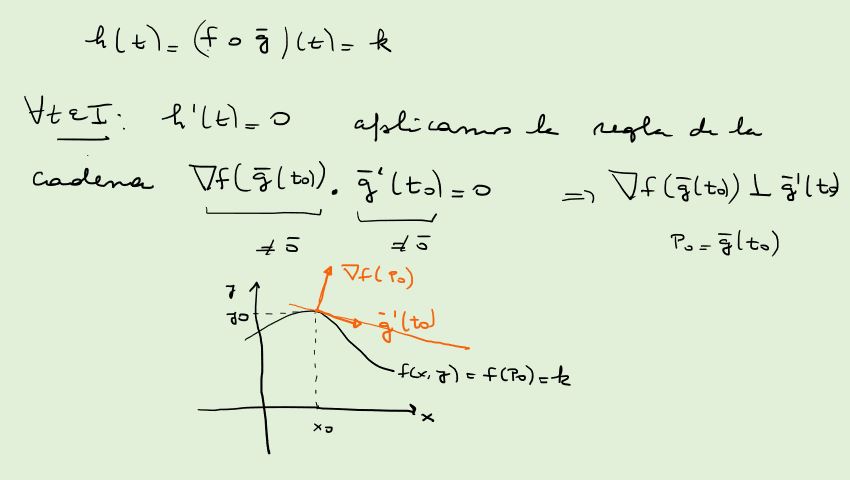 h(t) = (f o ḡ)(t) = k
∀t ∈ I: h'(t) = 0 aplicamos la regla de la
cadena ∇f(ḡ(t₀)) . ḡ'(t₀) = 0 ⇒ ∇f(ḡ(t₀)) ⊥ ḡ'(t₀)
≠ ō ≠ ō P₀ = ḡ(t₀)
∇f(P₀)
y
y₀ ḡ'(t₀)
f(x, y) = f(P₀) = k
x
x₀